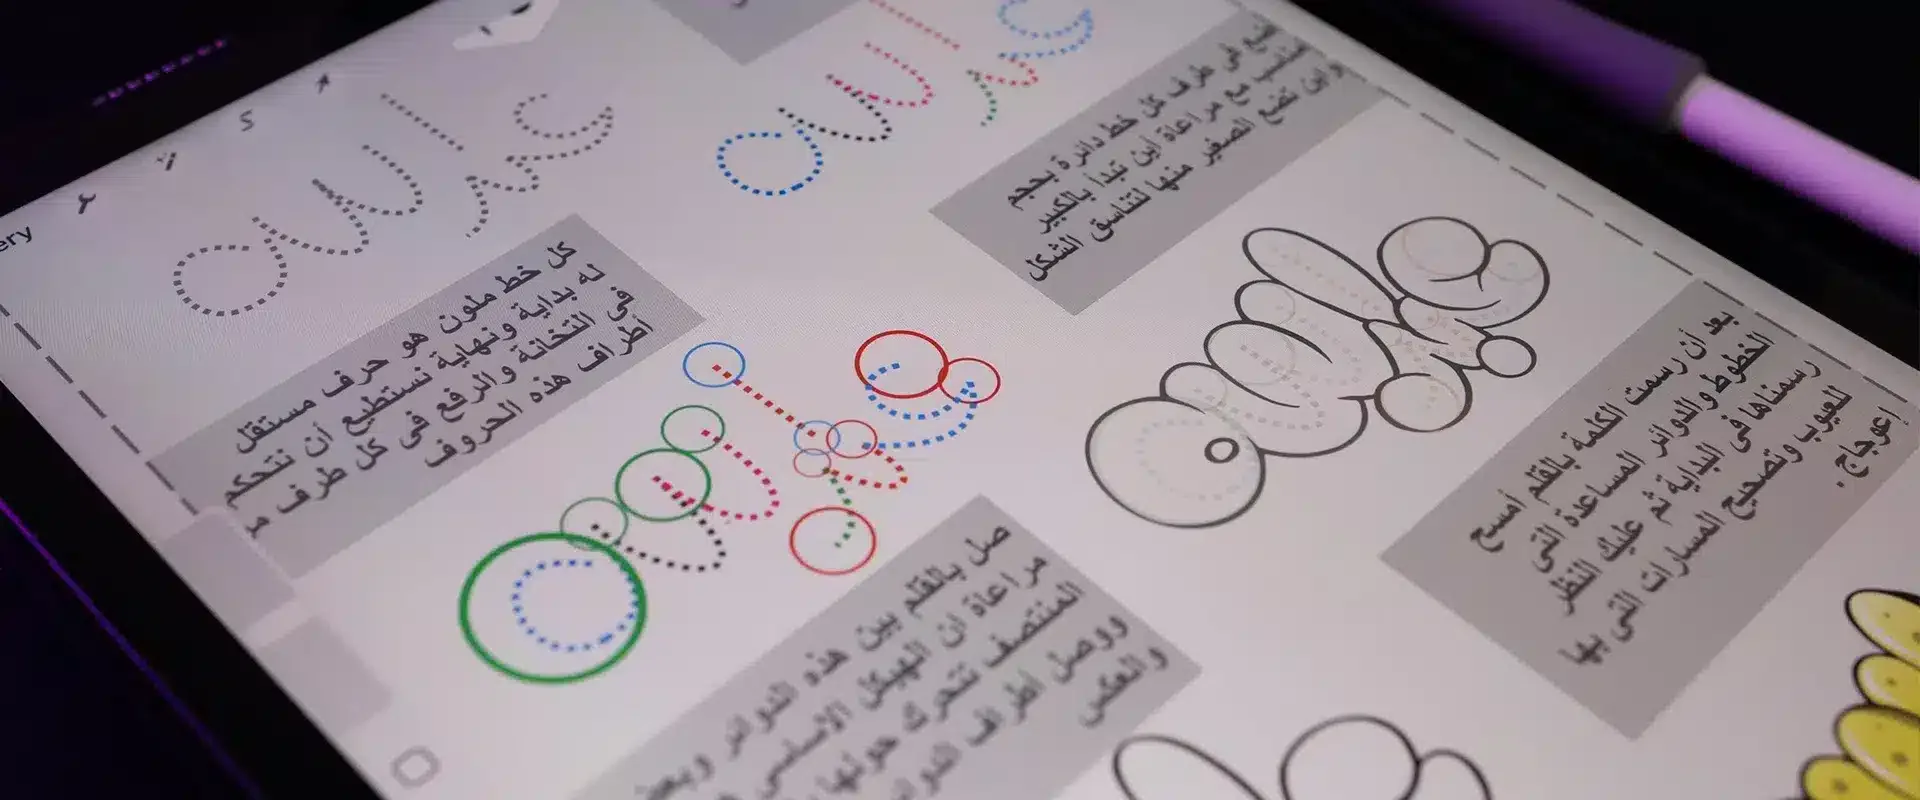 ery
كل خط ملون هو حرف مستقل
له بداية ونهاية نستطيع أن نتحكم
في التخانة والرفع في كل طرف م
أطراف هذه الحروف
في طرف كل خط دائرة بحجم
مع مراعاة أين تبدأ بالكبير
وأين تضع الصغير منها لتناسق الشكل
بعد أن رسمت الكلمة بالقلم أمسح
الخطوط والدوائر المساعدة التي
رسمناها في البداية ثم عليك النظر
للعيوب وتصحيح المسارات التي بها
إعوجاج.
صل بالقلم بين هذه الدوائر
مراعاة ان الهيكل الاساسي
المنتصف تتحرك حولها
ووصل اطراف الدوائر
والعكس